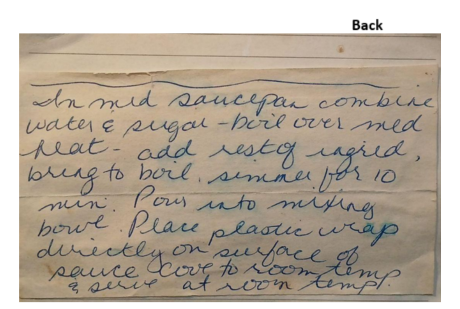 Back
In med saucepan combine
water & sugar - boil over med
heat - add rest of ingred,
bring to boil, simmer for 10
min. Pour into mixing
bowl. Place plastic wrap
directly on surface of
sauce Cool to room temp
& serve at room temp.